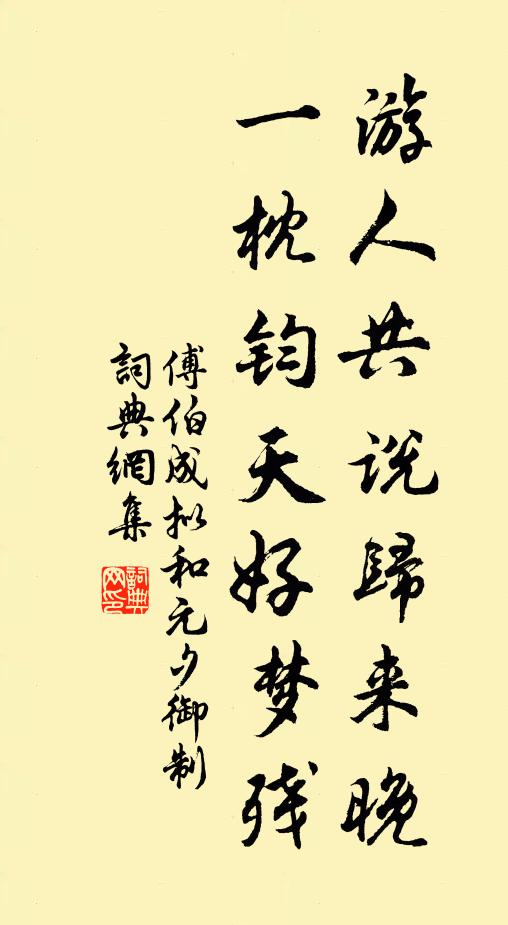 游人共说歸来晚
一枕钧天好梦残
傅伯成拟和元夕御制
詞典網集
詞典
网印